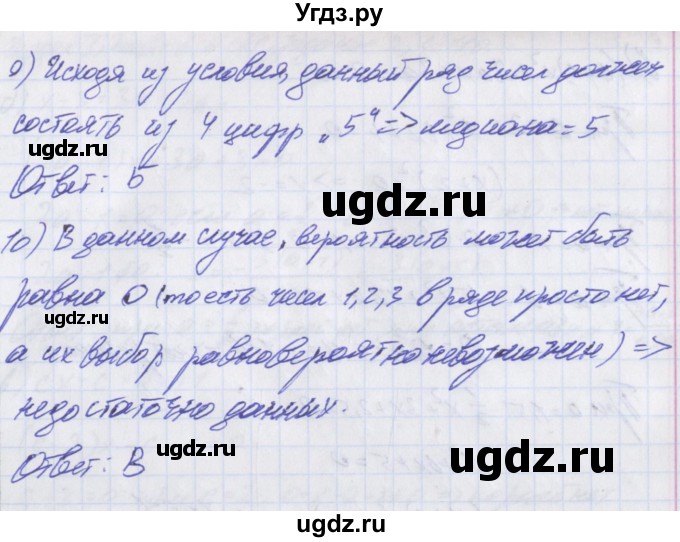 Угдз.ру
9) Исходя из условия, данный ряд чисел должен
состоять из 4 цифр „5“ => медиана = 5
ugdz.ru
ugdz.ru
Ответ: Б
ugdz.ru
10) В данном случае, вероятность может быть
равна 0 (то есть чисел 1,2,3 в ряде просто нет,
ugdz.ru
ugdz.ru
а их выбор равновероятно невозможен) =>
недостаточно данных.
ugdz.ru
ugdz.ru
Ответ: В
ugdz.ru